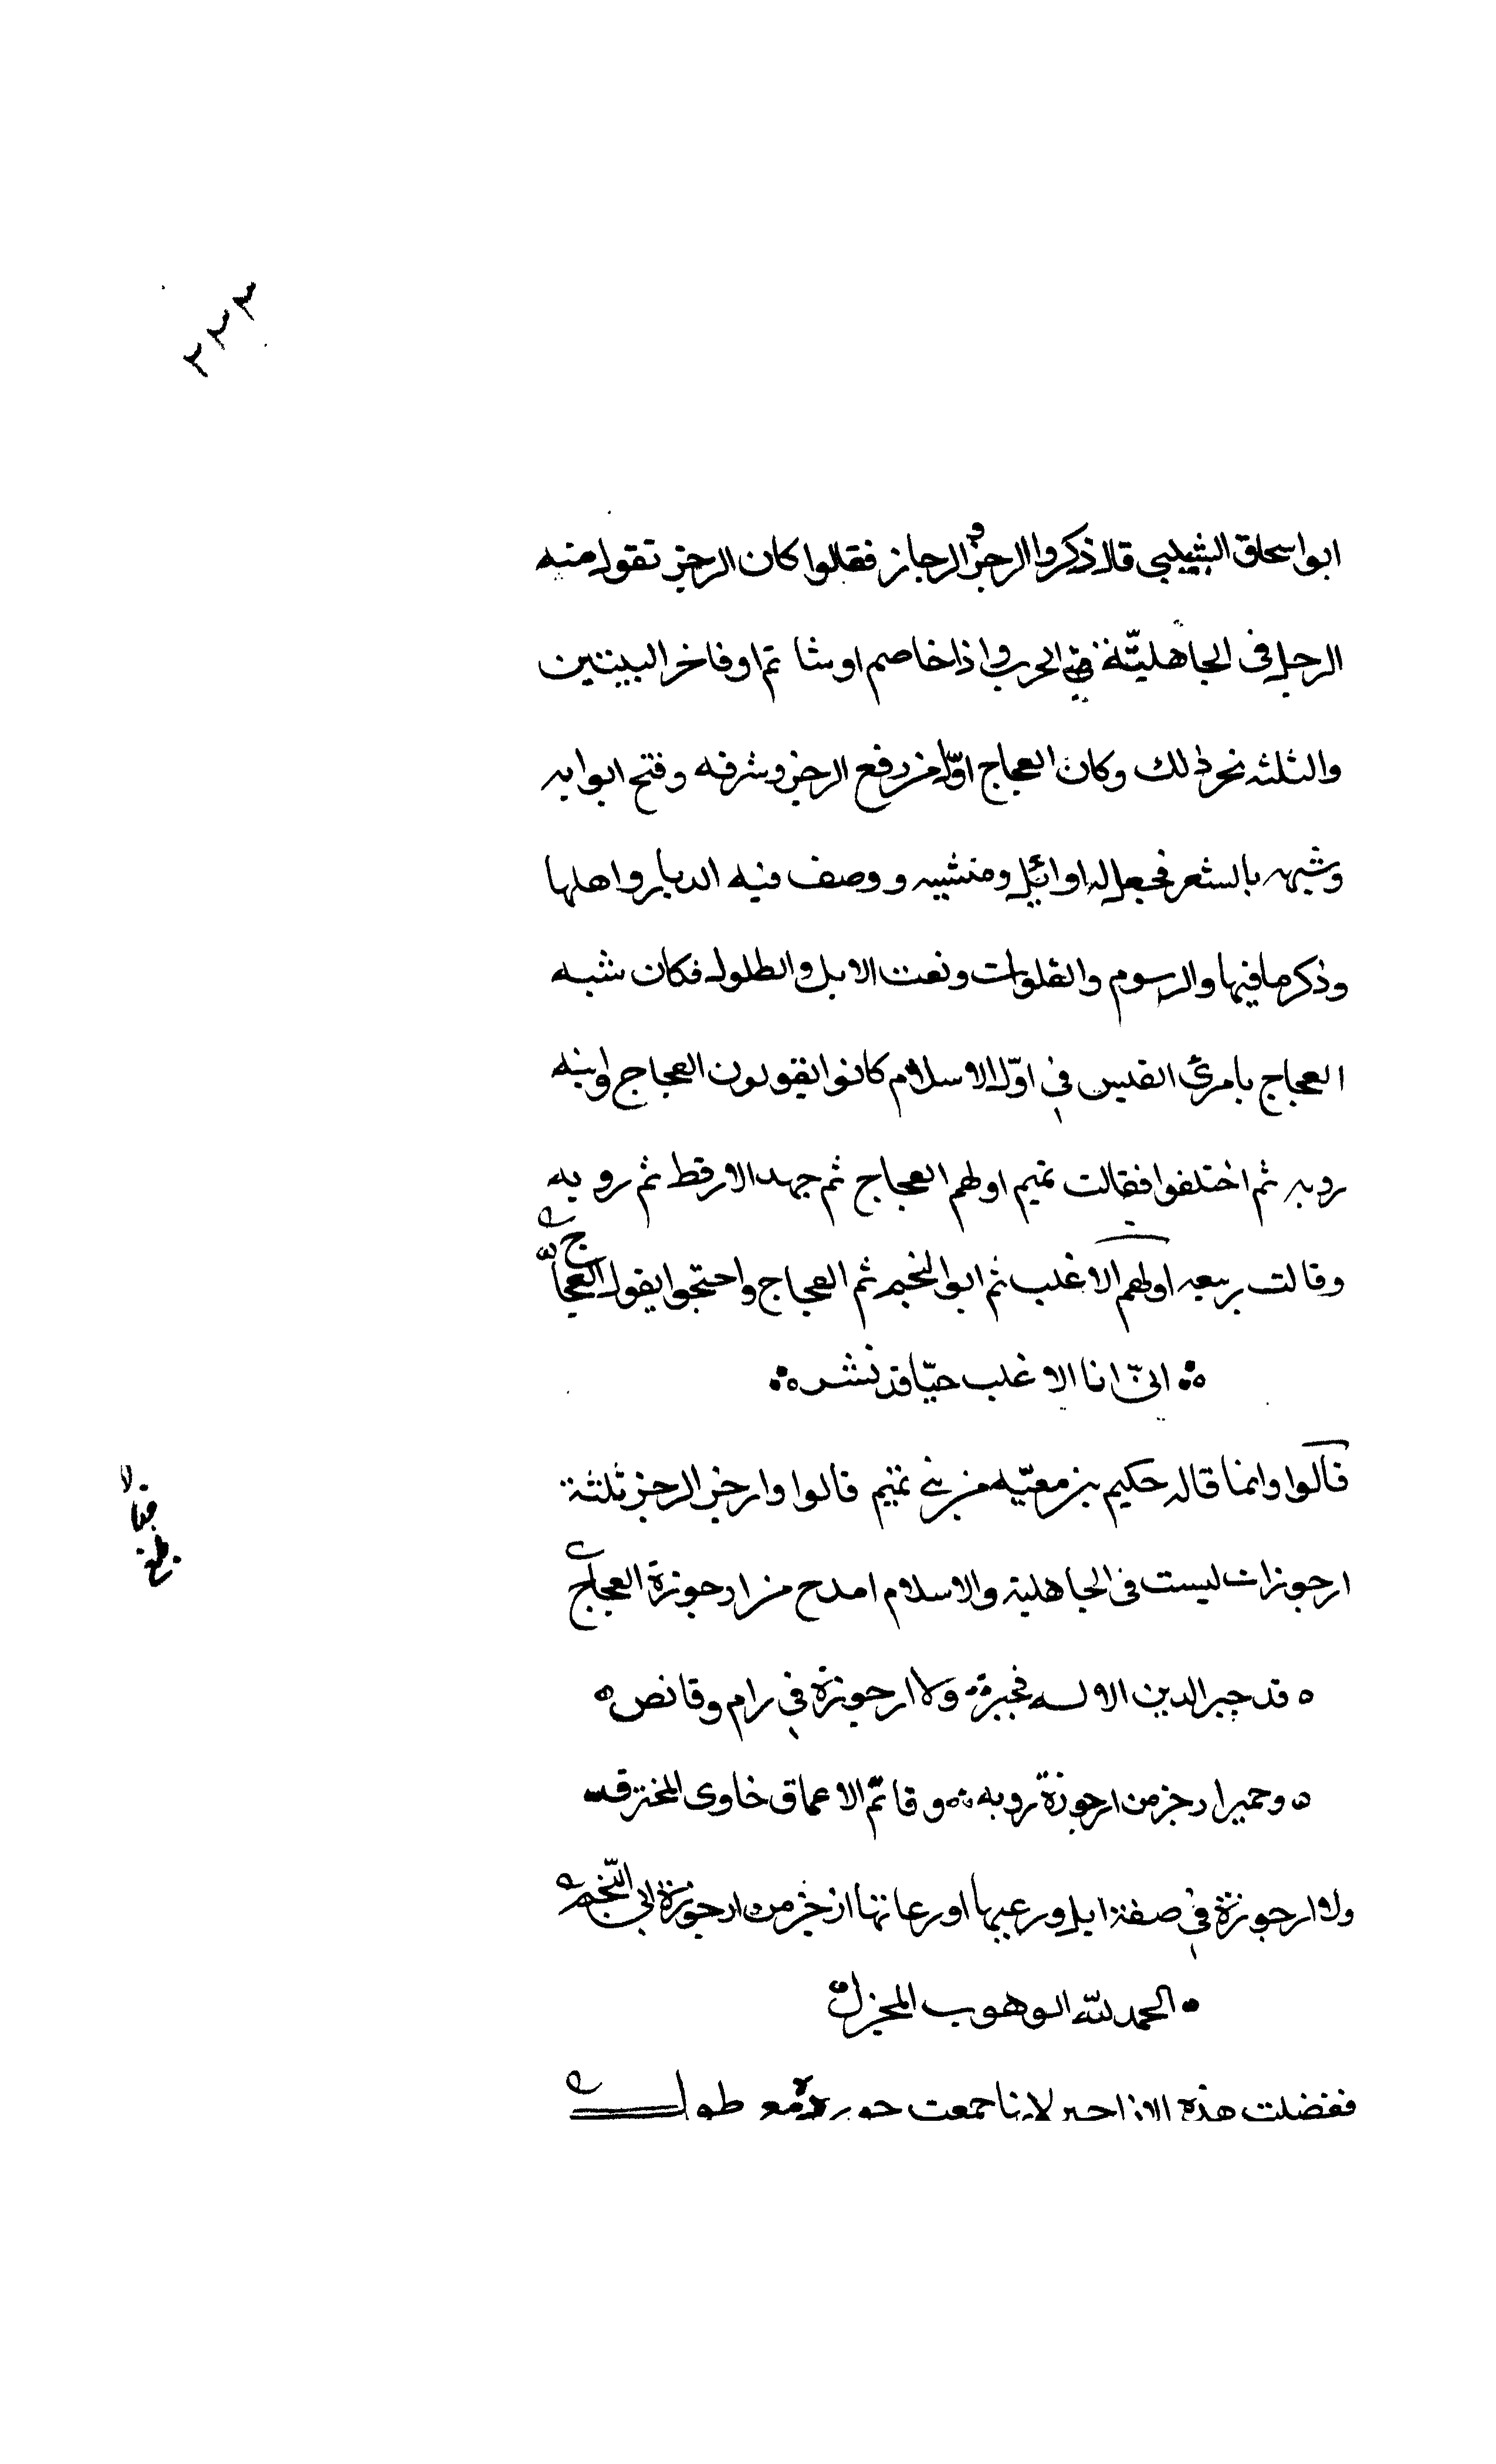 ٢٢٣
ابو اسحاق قال ذكروا الرجز و الرجاز فقالوا كان الرجز تقول منه
الرجل فى الجاهليّة فى الحرب واذا خاصم او شاتم او فاخر البيتين
والثلثه نحو ذلك وكان العجاج اوّل من رفع الرجز وشرفه وفتح ابوابه
وشبهه بالشعر فجعل له اوائل و ووصف فيه الديار واهلها
وذكر ما فيها والرسوم والفلوات ونعت الابل والطلول فكان شبه
العجاج بامرئ القيس فى اوّل الاسلام كانوا يقولون العجاج وابنه
روبه ثم اختلفوا فقالت تميم اولهم العجاج ثم حميد الارقط ثم روبه
وقالت ربيعه اولهم الاغلب ثم ابو النجم ثم العجاج واحتجوا بقول العجاج
انّى انا الاغلب حيّا قد نشر
قالوا وانما قاله حكيم بن معيّه من بنى تميم قالوا وارجز الرجز ثلثة
ارجوزات ليست فى الجاهلية والاسلام امدح من ارجوزة العجاج
قد جبر الدين الاله فجبر ولا ارجوزة فى رام وقانص
وحمير ارجز من ارجوزة روبه وقاتم الاعماق خاوى المخترق
ولا ارجوزة فى صفة ابل ورعيها او رعاتها ارجز من ارجوزة ابى النّجم
الحمد لله الوهوب المجزل
ففضلت هذه الاراجيز لانها جمعت جودة مع طول